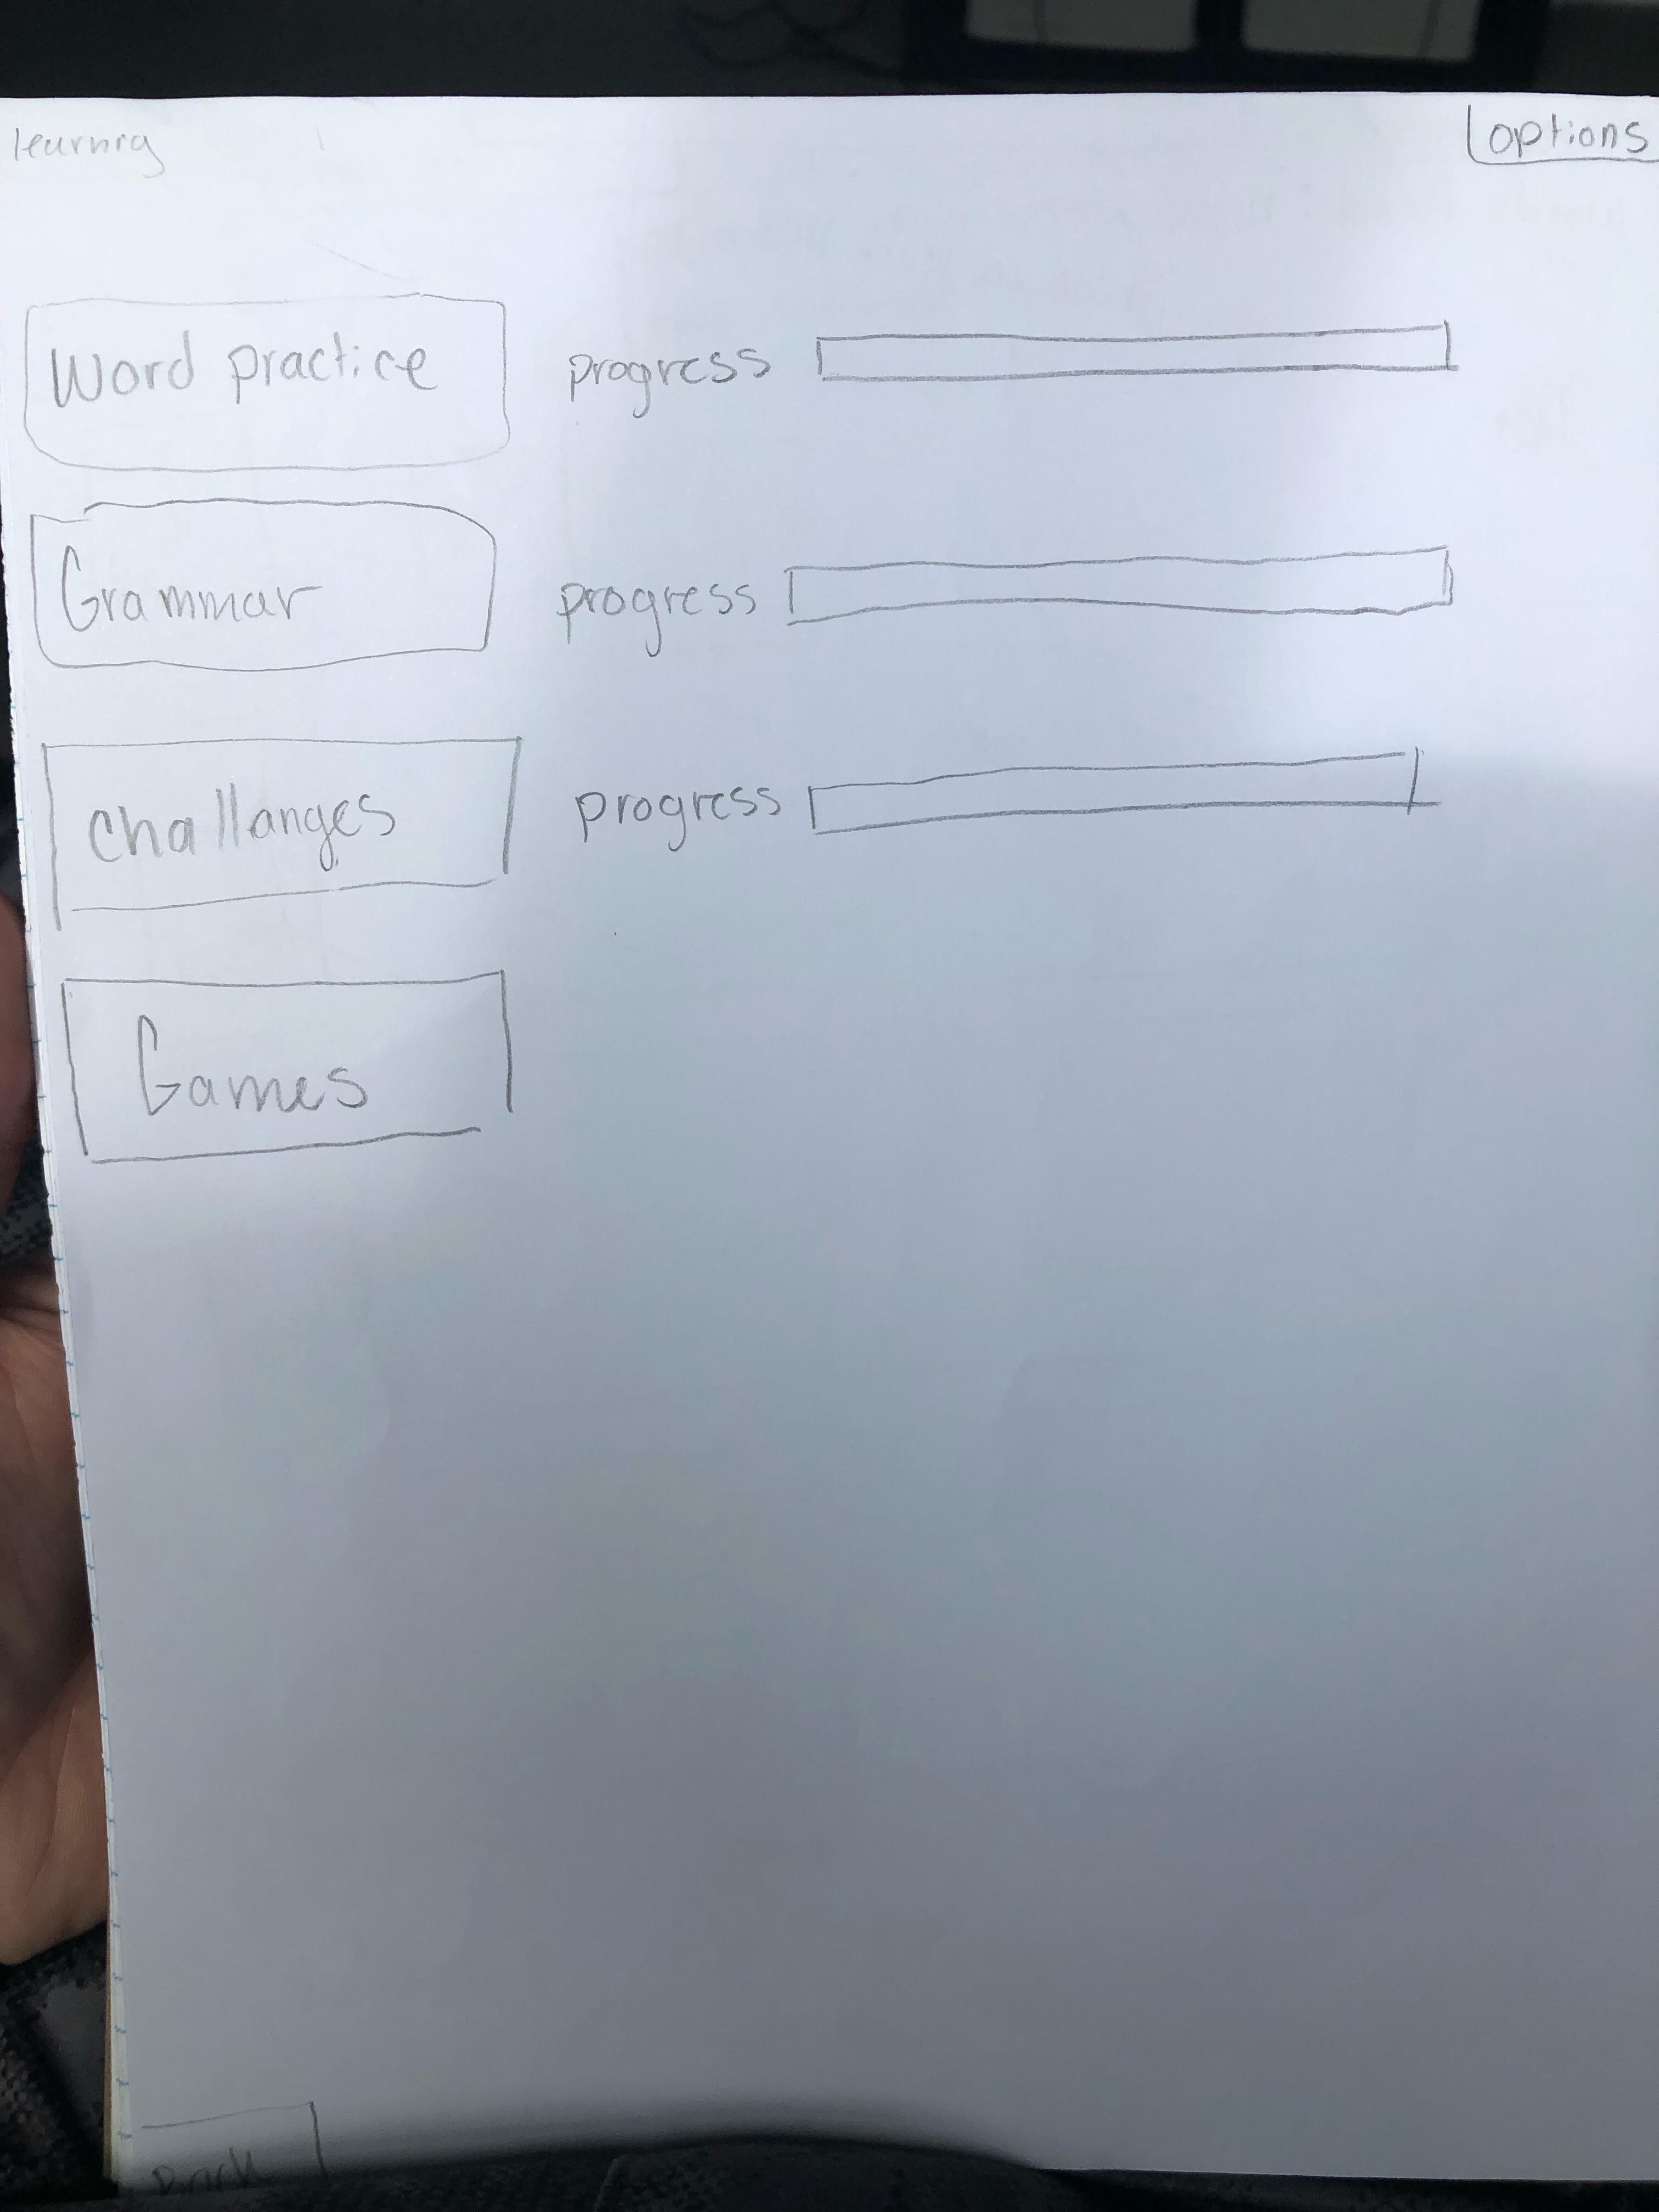 learnig
options
Word practice
progress
Grammar
progress
challanges
progress
Games
Back